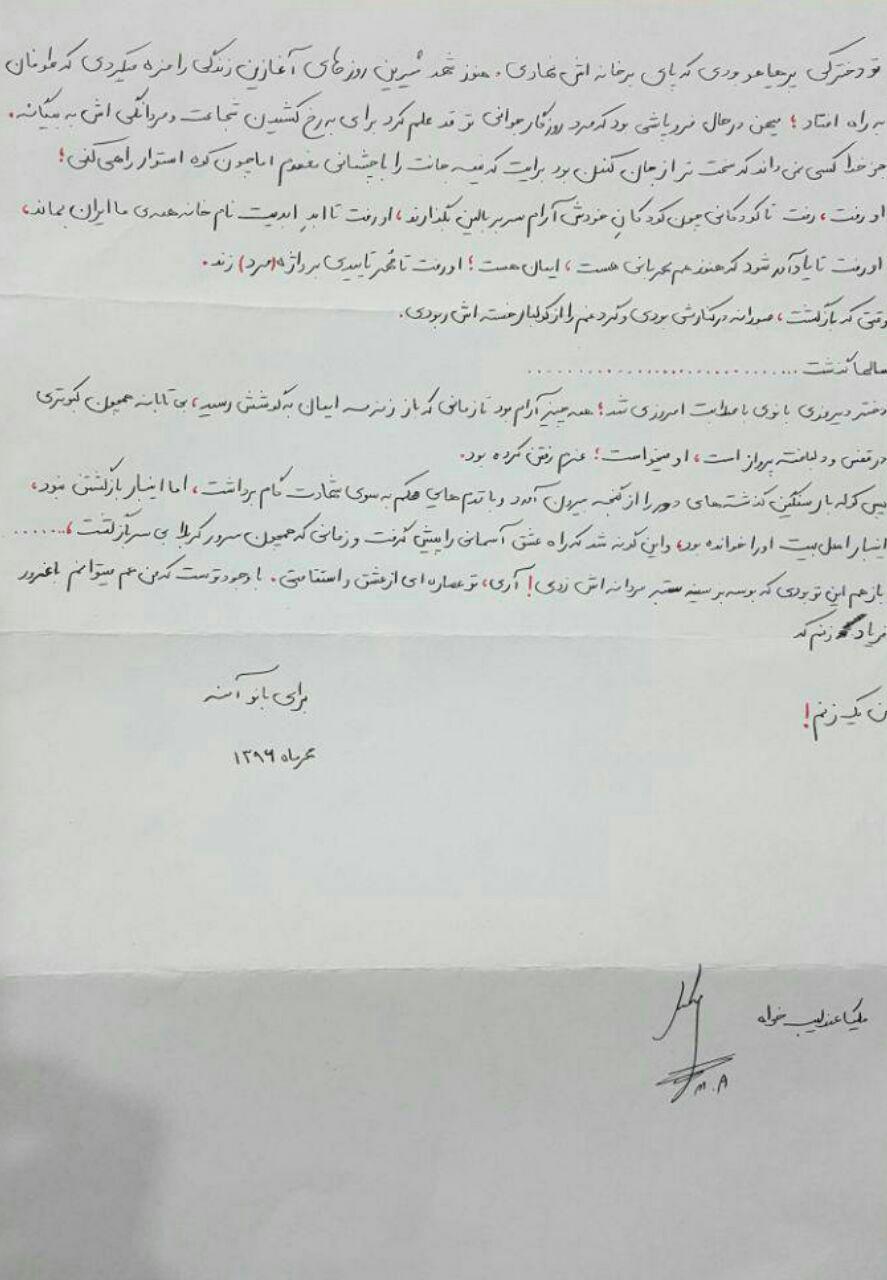 تو دخترکی پرهیاهو بودی که پای بر خانه اش نهادی. هنوز شهد شیرین روزهای آغازین زندگی را مزه میکردی که طوفان
به راه افتاد؛ میهن درحال فروپاشی بود که مرد روزگار جوانی تو قد علم کرد برای به رخ کشیدن شجاعت و مردانگی اش به بیگانه.
جز خدا کسی نمی داند که سخت تر از جان کندن بود برایت که نیمه جانت را با چشمانی مغموم اما چون کوه استوار راهی کنی؛
او رفت، رفت تا کودکانی چون کودکان خودش آرام سر بر بالین بگذارند، او رفت تا ابد ابدیت نام خانه همه ی ما ایران بماند،
او رفت تا یادآور شود که هنوز هم مهربانی هست، ایمان هست؛ او رفت تا مُهر تاییدی بر واژه (مرد) زند.
وقتی که بازگشت، صبورانه در کنارش بودی و گرد غم را از کوله بار خسته اش ربودی.
سالها گذشت ..............................
دختر دیروزی بانوی با صلابت امروزی شد؛ همه چیز آرام بود تا زمانی که باز زمزمه ایمان به گوشش رسید، بی تابانه همچون کبوتری
در قفس و دلباخته پرواز است، او میخواست؛ عزم رفتن کرده بود.
پس کوله بار سنگین گذشته های دور را از گنجه بیرون آورد و با قدم هایی محکم به سوی شهادت گام برداشت، اما اینبار بازگشتی نبود،
اینبار اهل بیت او را خوانده بود، و این گونه شد که راه عشق آسمانی را پیش گرفت و زمانی که همچون سرور کربلا بی سر بازگشت، .......
باز هم این تو بودی که بوسه بر سینه ستبر مردانه اش زدی! آری، تو عصاره ای از عشق و استقامتی. با وجود توست که من هم میتوانم با غرور
فریاد زنم که
من یک زنم!
برای بانو آمنه
مهرماه ۱۳۹۶
ملیکا عندلیب خواه
M.A